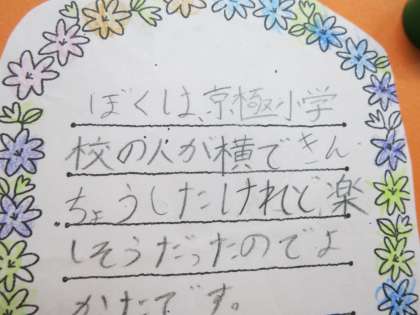 ぼくは、京極小学
校の人が横できん
ちょうしたけれど、楽
しそうだったのでよ
かたです。